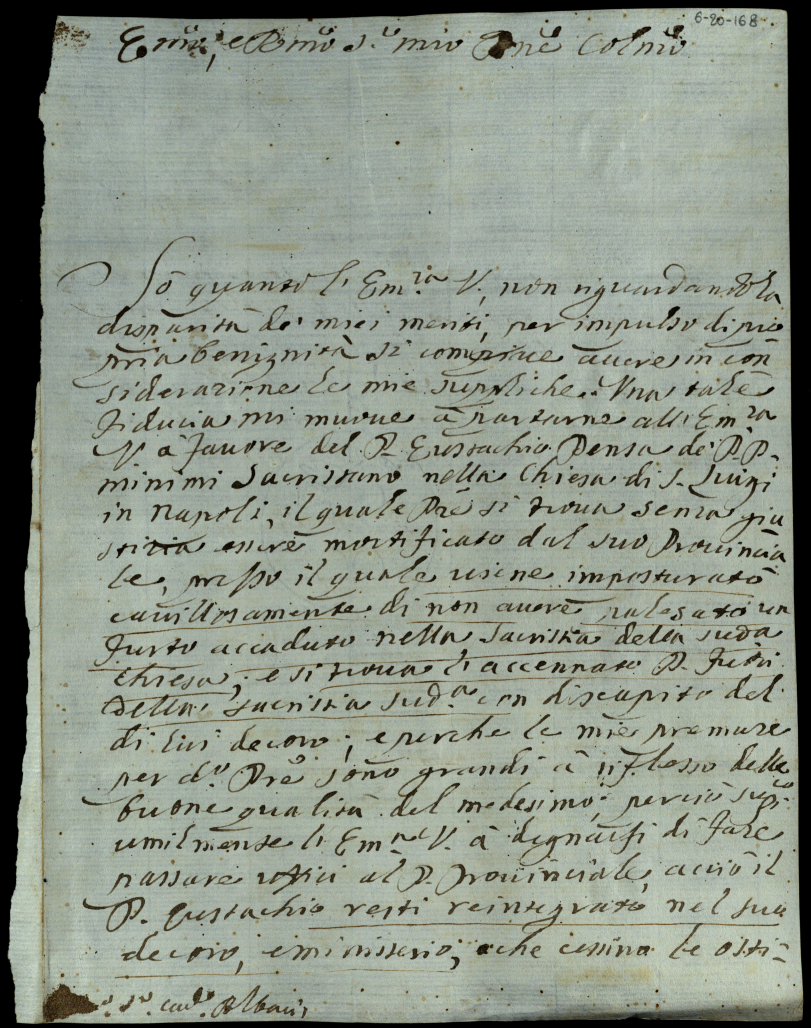 6-20-168
Em.mo, e Rmo S.r mio Pne Colmo
Sò quanto l'Em.za V., non riguardando la
disparità de' miei meriti, per impulso di pro
pria benignità si compiace avere in con
siderazione le mie suppliche. Una tale
fiducia mi muove à portarne all'Em.za
V. à favore del P. Eustachio Pensa de' P.P.
minimi Sacristano nella Chiesa di S. Luigi
in Napoli, il quale Pre si trova senza giu
stizia essere mortificato dal suo Provincia
le, presso il quale viene imposturato
cavillosamente di non avere palesato un
furto accaduto nella Sacristia della suda
Chiesa, e si trova l'accennato P. fuori
della Sacristia sud.a con discapito del
di lui decoro; e perche le mie premure
per d.o Pre sono grandi à riflesso delle
buone qualità del medesimo; perciò supp.co
umilmente l'Em.za V. à dignarsi di fare
passare uffici al P. Provinciale, acciò il
P. Eustachio resti reintegrato nel suo
decoro, e ministerio, che cessino le osti=
S.r Card. Albani